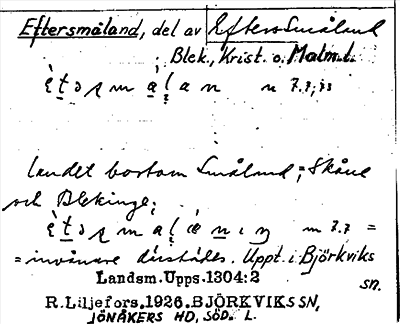 Eftersmåland, del av Eftersmåland
Blek., Krist. o. Malm. l.
landet bortom Småland; Skåne
och Blekinge;
= invånare därstädes. Uppt. i Björkviks
sn.
Landsm. Upps. 1304:2
R. Liljefors. 1926. BJÖRKVIKS SN,
JÖNÅKERS HD, SÖD. L.